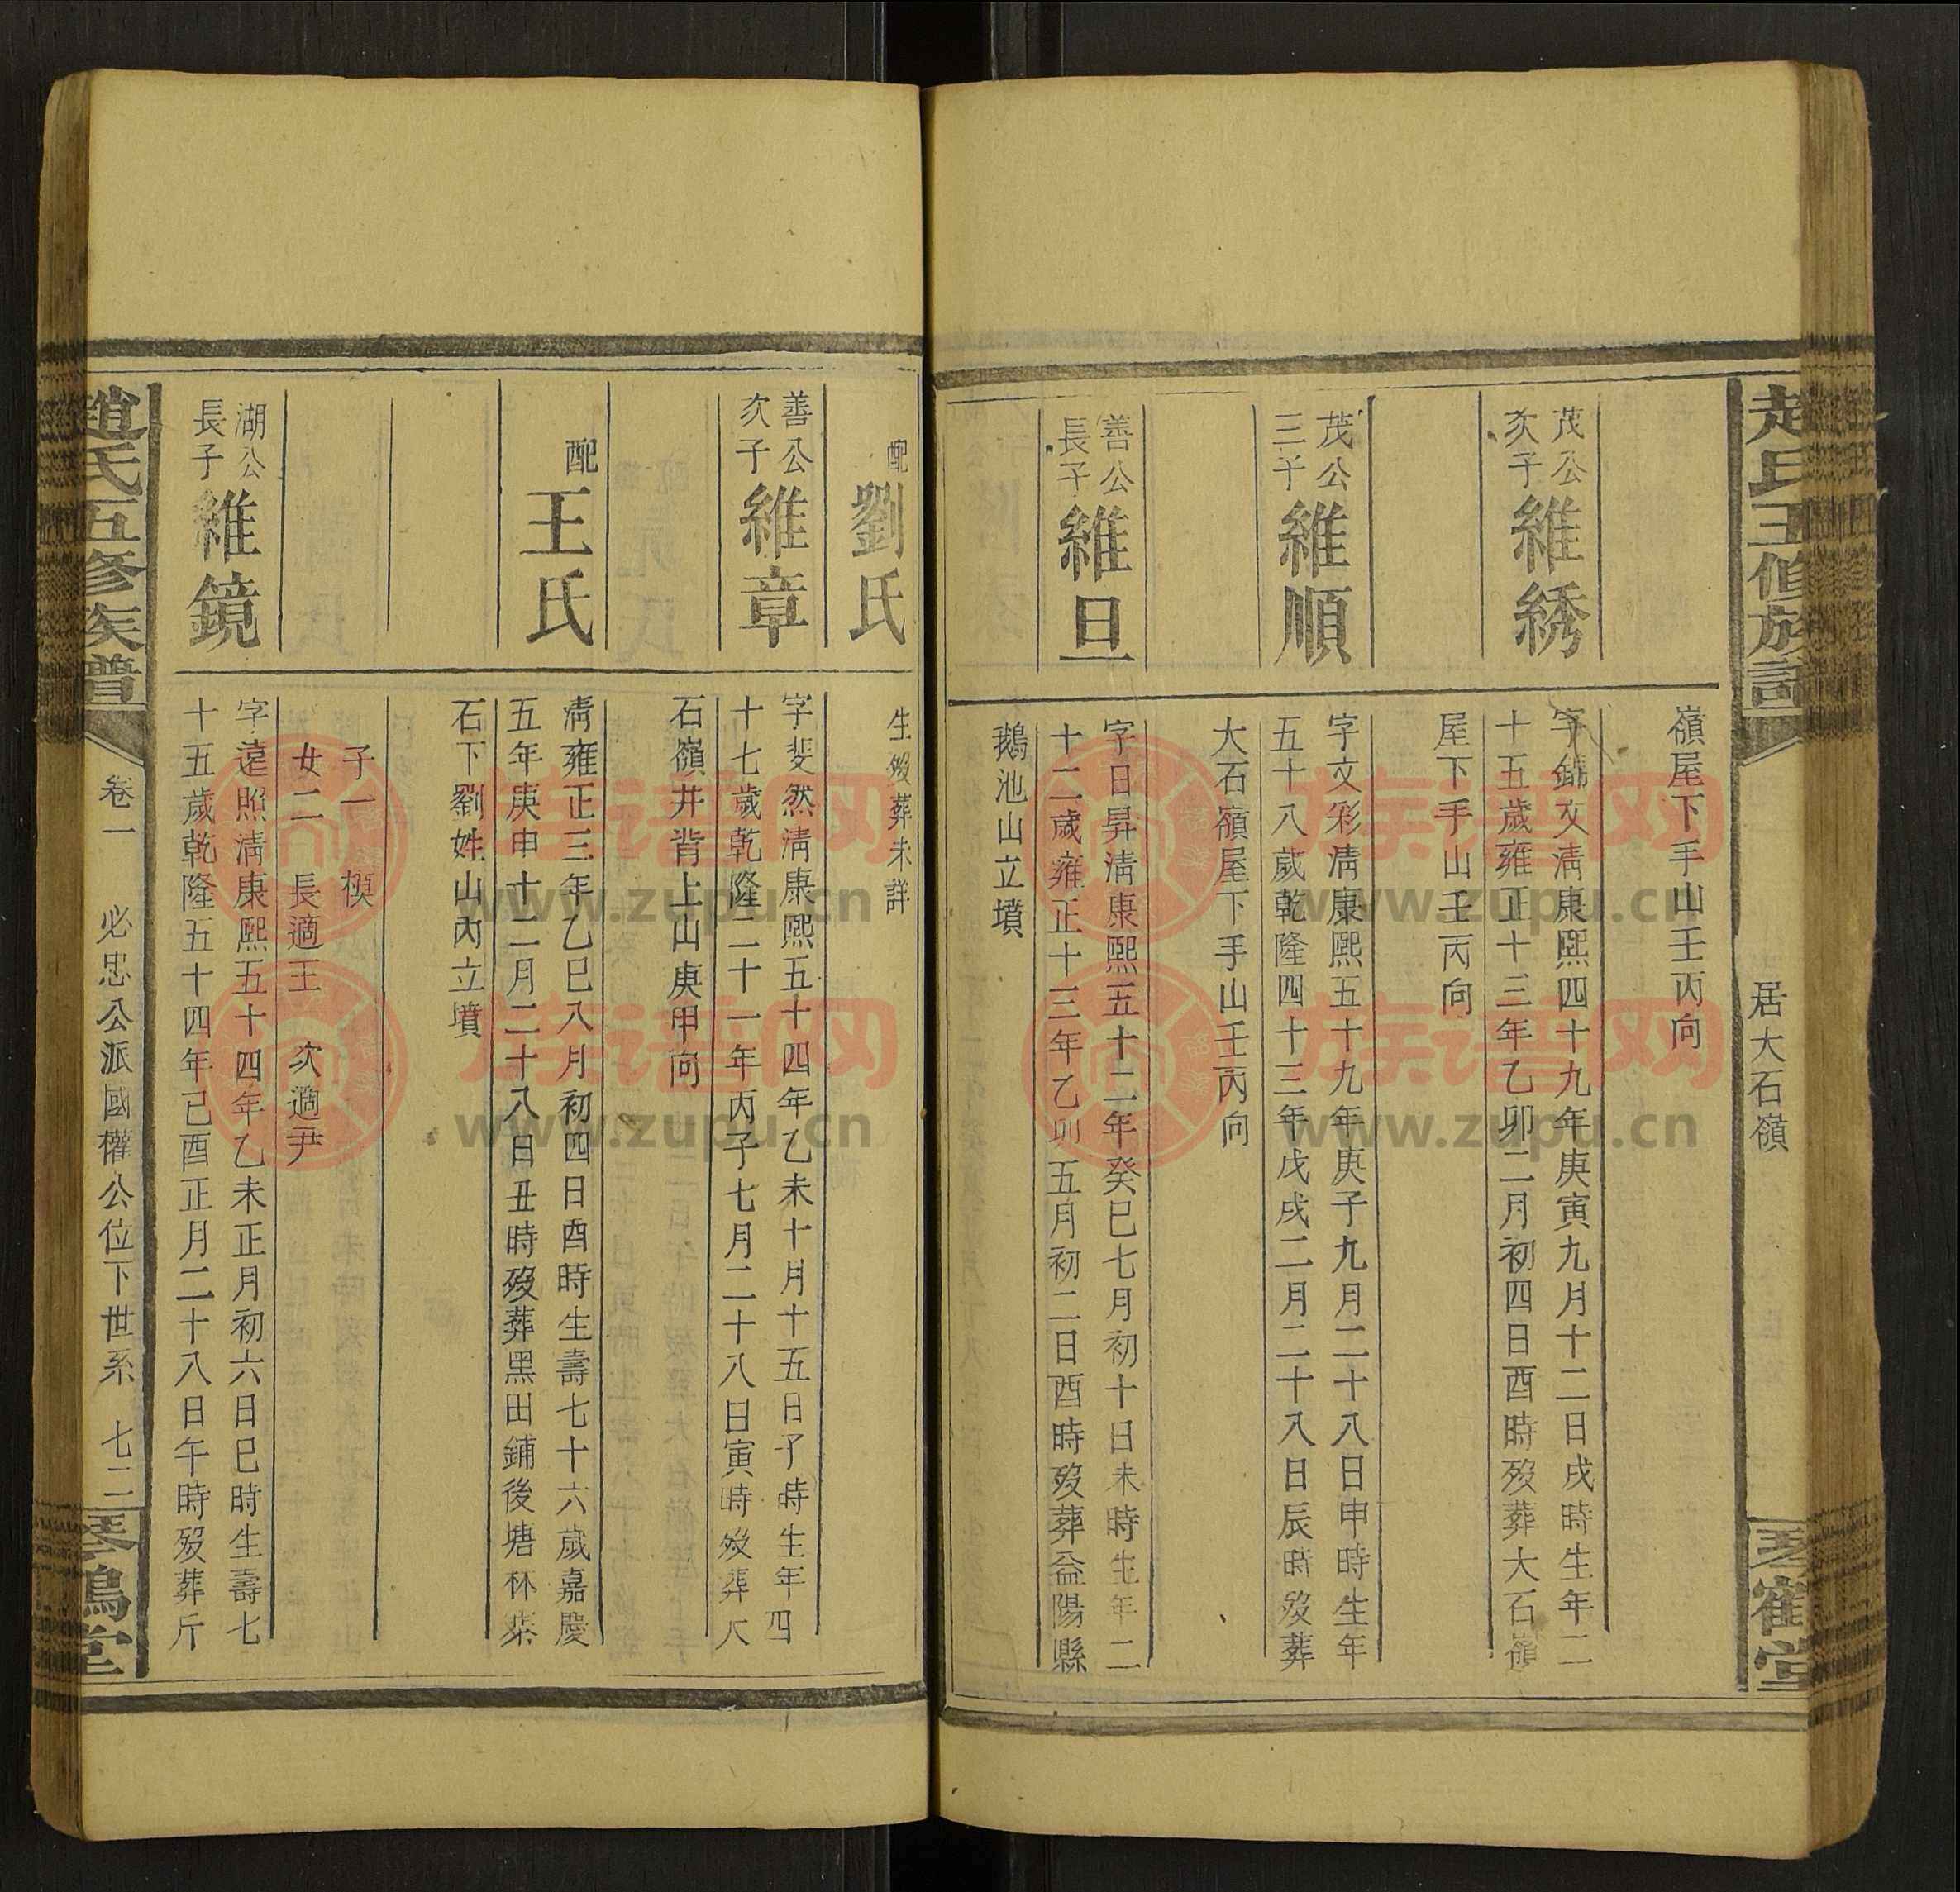 趙氏五修族譜
居大石嶺
琴鶴堂
嶺屋下手山壬丙向
茂公
次子
維綉
字錦文清康熙四十九年庚寅九月十二日戌時生年二
十五歲雍正十三年乙卯二月初四日酉時歿葬大石嶺
屋下手山壬丙向
茂公
三子
維順
字文彩清康熙五十九年庚子九月二十八日申時生年
五十八歲乾隆四十三年戊戌二月二十八日辰時歿葬
大石嶺屋下手山壬丙向
善公
長子
維旦
字日昇清康熙五十二年癸巳七月初十日未時生年二
十二歲雍正十三年乙卯五月初二日酉時歿葬益陽縣
鵝池山立墳
配
劉氏
生歿葬未詳
善公
次子
維章
字斐然清康熙五十四年乙未十月十五日子時生年四
十七歲乾隆二十一年丙子七月二十八日寅時歿葬大
石嶺井背上山庚甲向
配
王氏
清雍正三年乙巳八月初四日酉時生壽七十六歲嘉慶
五年庚申十二月二十八日丑時歿葬黑田鋪後塘杯柒
石下劉姓山內立墳
子一 模
女二 長適王 次適尹
湖公
長子
維鏡
字遠照清康熙五十四年乙未正月初六日巳時生壽七
十五歲乾隆五十四年己酉正月二十八日午時歿葬斤
趙氏五修族譜
卷一
必忠公派國權公位下世系 七二
琴鶴堂
族谱网
www.zupu.cn
族谱网
www.zupu.cn
族谱网
www.zupu.cn
族谱网
www.zupu.cn